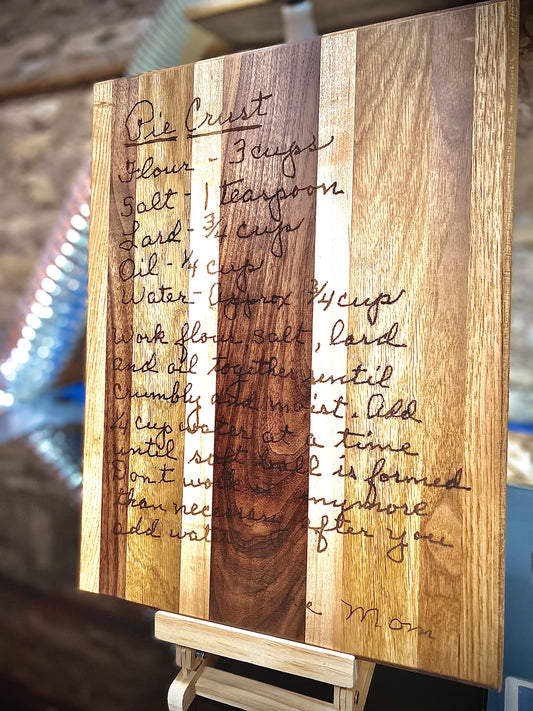 Pie Crust
Flour - 3 cups
Salt - 1 teaspoon
Lard - 3/4 cup
Oil - 1/4 cup
Water - Approx 3/4 cup
Work flour salt, lard
and oil together until
crumbly and moist. Add
1/4 cup water at a time
until soft ball is formed
Don't work it anymore
than necessary after you
add water
Mom